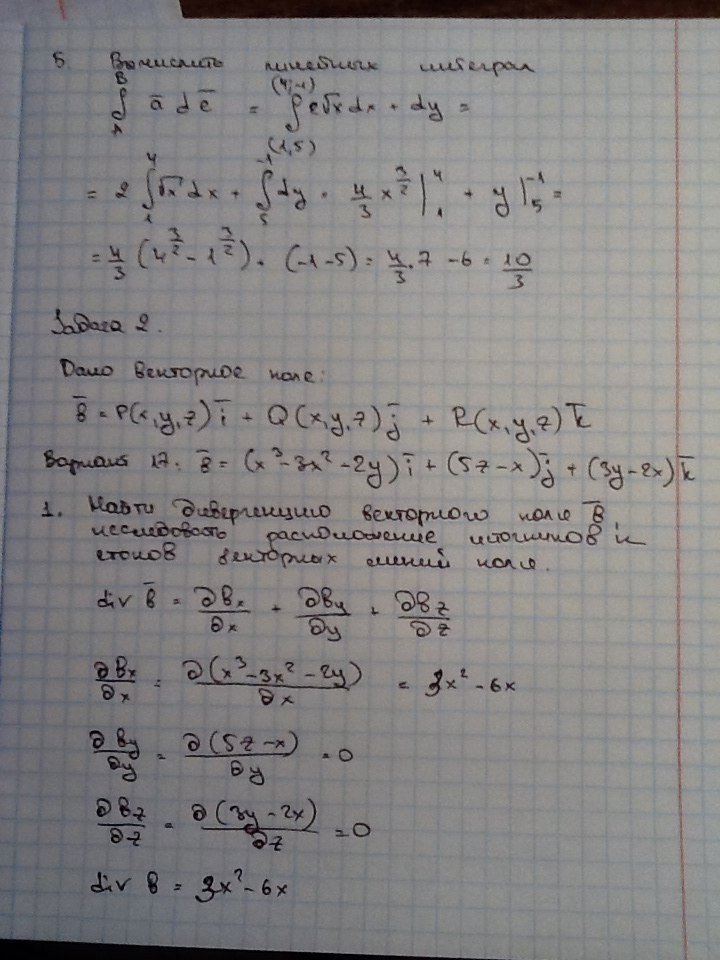 5. Вычислить линейный интеграл
∫_A^B ā dē = ∫_(1,5)^(4,-1) 2√x dx + dy =
= 2 ∫_1^4 √x dx + ∫_5^-1 dy = 4/3 x^(3/2) |_1^4 + y |_5^-1 =
= 4/3 (4^(3/2) - 1^(3/2)) + (-1-5) = 4/3 · 7 - 6 = 10/3
Задача 2.
Дано векторное поле:
b̄ = P(x,y,z) ī + Q(x,y,z) j̄ + R(x,y,z) k̄
Вариант 17: b̄ = (x³-3x²-2y) ī + (5z-x) j̄ + (3y-2x) k̄
1. Найти дивергенцию векторного поле b̄,
исследовать расположение источников и
стоков векторных линий поле.
div b̄ = ∂bx/∂x + ∂by/∂y + ∂bz/∂z
∂bx/∂x = ∂(x³-3x²-2y)/∂x = 3x²-6x
∂by/∂y = ∂(5z-x)/∂y = 0
∂bz/∂z = ∂(3y-2x)/∂z = 0
div b = 3x²-6x